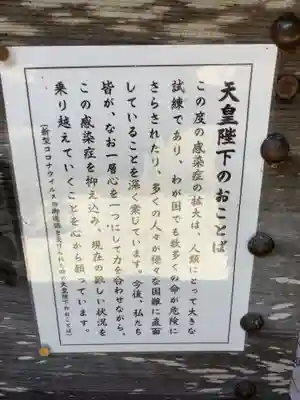 天皇陛下のおことば
この度の感染症の拡大は、人類にとって大きな
試練であり、わが国でも数多くの命が危険に
さらされたり、多くの人々が様々な困難に直面
していることを深く案じています。今後、私たち
皆が、なお一層心を一つにして力を合わせながら、
この感染症を抑え込み、現在の難しい状況を
乗り越えていくことを心から願っています。
（新型コロナウイルスの御進講を受けられた時の天皇陛下のおことば）